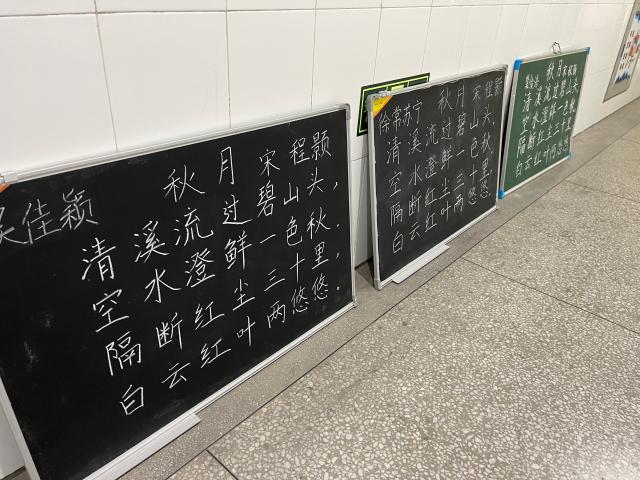 秋月 宋 程颢
吴佳颖
清溪流过碧山头,
空水澄鲜一色秋.
隔断红尘三十里,
白云红叶两悠悠.
徐常苏宁
秋月 宋 程颢
清溪流过碧山头,
空水澄鲜一色秋
隔断红尘三十里
白云红叶两悠悠
秋月 宋 程颢
清溪流过碧山头
空水澄鲜一色秋
隔断红尘三十里
白云红叶两悠悠